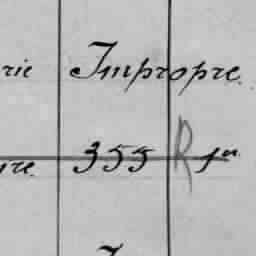 rie Impropre
re 355 R